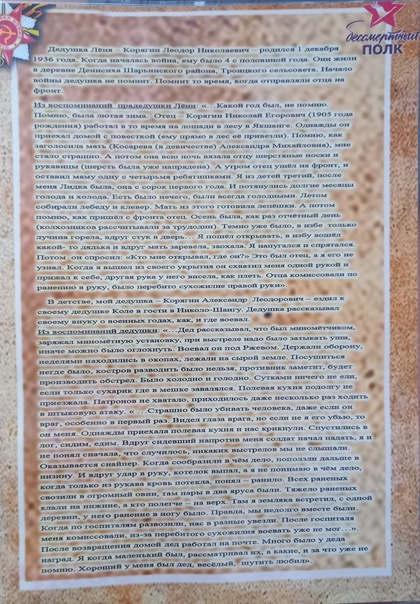 бессмертный
ПОЛК
Дедушка Лёня – Корягин Леодор Николаевич – родился 1 декабря
1936 года. Когда началась война, ему было 4 с половиной года. Они жили
в деревне Денисиха Шарьинского района, Троицкого сельсовета. Начало
войны дедушка не помнит. Помнит то время, когда отправляли отца на
фронт.
Из воспоминаний прадедушки Лёни: «…Какой год был, не помню.
Помню, была лютая зима. Отец – Корягин Николай Егорович (1905 года
рождения) работал в то время на лошади в лесу в Якшанге. Однажды он
приехал домой с повесткой (ему прямо в лес её привезли). Помню, как
заголосила мать (Косарева (в девичестве) Александра Михайловна), мне
стало страшно. А потом она всю ночь вязала отцу шерстяные носки и
рукавицы (шерсть была уже напрядена). А утром отец ушёл на фронт, и
оставил маму одну с четырьмя ребятишками. Я из детей третий, после
меня Лидка была, она с сорок первого года. И потянулись долгие месяцы
голода и холода. Есть было нечего, были всегда голодными. Летом
собирали лебеду и клевер. Мать из этого готовила лепёшки. А потом
помню, как пришёл с фронта отец. Осень была, как раз отчётный день
(колхозников рассчитывали за трудодни). Темно уже было, в избе только
лучина горела, вдруг стук в дверь… Я пошёл открывать, в избу вошёл
какой- то дядька и вдруг мать заревела, заохала. Я напугался и спрятался.
Потом он спросил: «Кто мне открывал, где он?» Это был отец, а я его не
узнал. Когда я вышел из своего укрытия он схватил меня одной рукой и
прижал к себе, другая рука у него висела, как плеть. Отца комиссовали по
ранению в руку, было перебито сухожилие правой руки».
В детстве, мой дедушка – Корягин Александр Леодорович – ездил к
своему дедушке Коле в гости в Николо-Шангу. Дедушка рассказывал
своему внуку о военных годах, как, и где воевал.
Из воспоминаний дедушки: «…Дед рассказывал, что был миномётчиком,
заряжал миномётную установку, при выстреле надо было затыкать уши,
иначе можно было оглохнуть. Воевал он под Ржевом. Держали оборону,
неделями находились в окопах, лежали на сырой земле. Посушиться
негде было, костров разводить было нельзя, противник заметит, будет
производить обстрел. Было холодно и голодно. Сутками ничего не ели,
если только сухарик где в мешке завалялся. Полевая кухня подолгу не
приезжала. Патронов не хватало, приходилось даже несколько раз ходить
в штыковую атаку. « …Страшно было убивать человека, даже если он
враг, особенно в первый раз. Видел глаза врага, но если не я его убью, то
он меня. Однажды приехала полевая кухня и нас крикнули. Спустились в
лог, сидим, едим. Вдруг сидевший напротив меня солдат начал падать, я и
не понял сначала, что случилось, никаких выстрелов мы не слышали.
Оказывается снайпер. Когда сообразили в чём дело, поползли дальше в
низину. И вдруг удар в руку, котелок выпал, а я не понимаю в чём дело,
когда только из рукава кровь потекла, понял – ранило. Всех раненых
свозили в огромный овин, там нары в два яруса были. Тяжело раненых
клали на нижние, а кто полегче – на верх. Там я земляка встретил, с одной
деревни, у него ранение в ногу было. Правда, мы недолго вместе были.
Когда по госпиталям развозили, нас в разные увезли. После госпиталя
меня комиссовали, из-за перебитого сухожилия воевать уже не мог…».
После возвращения домой дед работал на почте. Много было у деда
наград. Я когда маленький был, рассматривал их, а какие, и за что уже не
помню. Хороший у меня был дед, весёлый, шутить любил».